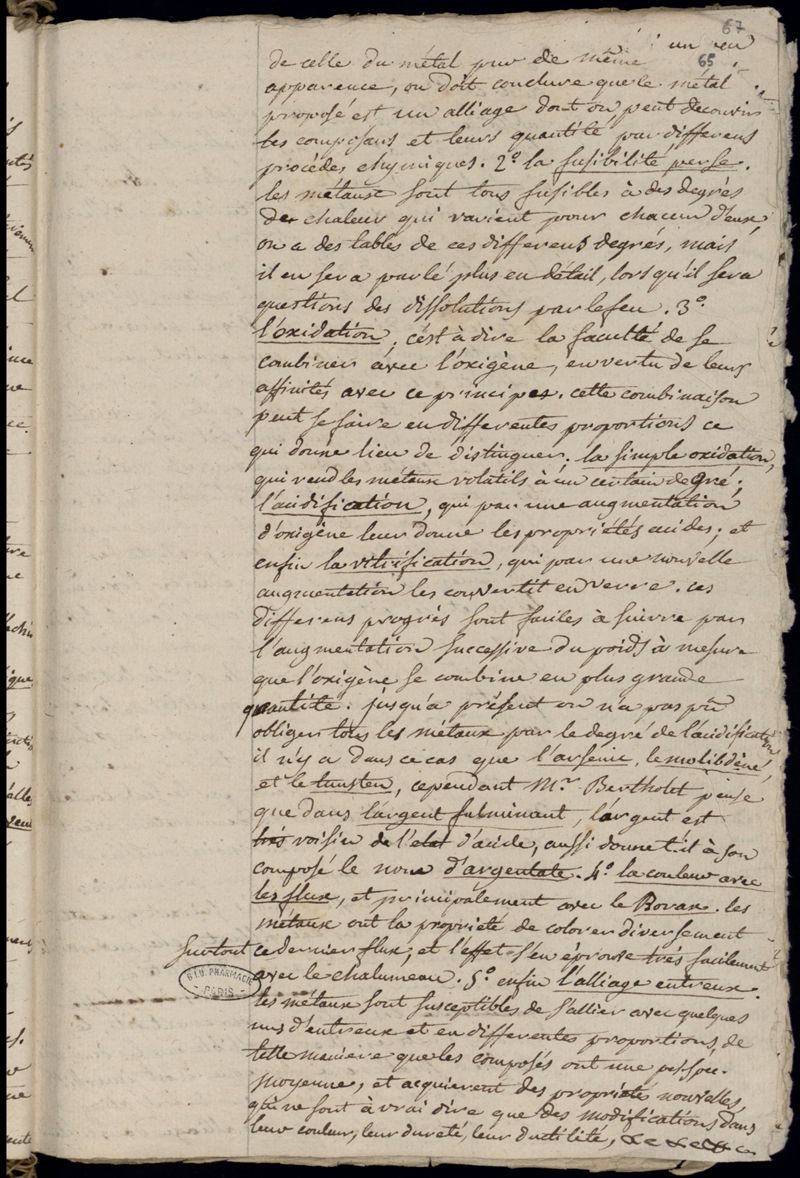 67
65
de celle du métal pur de même
apparence, on doit conclure que le métal
proposé est un alliage dont on peut découvrir
les composans et leurs quantité par differens
procédés chymiques. 2.º la fusibilité per se.
les métaux sont tous fusibles à des degrés
de chaleur qui varient pour chacun d'eux,
on a des tables de ces differens degrés, mais
il en sera parlé plus en détail, lorsqu'il sera
questions des dissolutions par le feu. 3.º
l'oxidation, c'est à dire la faculté de se
combiner avec l'oxigène, en vertu de leurs
affinités avec ce principes. cette combinaison
peut se faire en differentes proportions ce
qui donne lieu de distinguer; la simple oxidation,
qui rend les métaux volatils à un certain degré;
l'acidification, qui par une augmentation
d'oxigène leur donne les propriétés acides; et
enfin la vitrification, qui par une nouvelle
augmentation les convertit en verre. ces
differens progrés sont faciles à suivre par
l'augmentation successive du poids à mesure
que l'oxigène se combine en plus grande
quantité. jusqu'a présent on n'a pas pû
obliger tous les métaux par le degré de l'acidification
il n'y a dans ce cas que l'arsenic, le molibdène,
et le tunsten, cependant M.r Berthollet pense
que dans l'argent fulminant, l'argent est
très voisin de l'etat d'acide, aussi donne t'il à son
composé le nom d'argentate. 4.º la couleur avec
les flux, et principalement avec le Borax. les
métaux ont la propriété de colorer diversement
surtout ce dernier flux, et l'effet s'en éprouve très facilement
avec le chalumeau. 5.º enfin l'alliage entreux.
B.I.U. PHARMACIE
PARIS
les métaux sont susceptibles de s'allier avec quelques
uns d'entreux et en differentes proportions, de
telle maniere que les composés ont une pes. spéc.
moyenne, et acquierent des propriétés nouvelles,
qui ne sont à vrai dire que des modifications dans
leur couleur, leur dureté, leur ductilité,